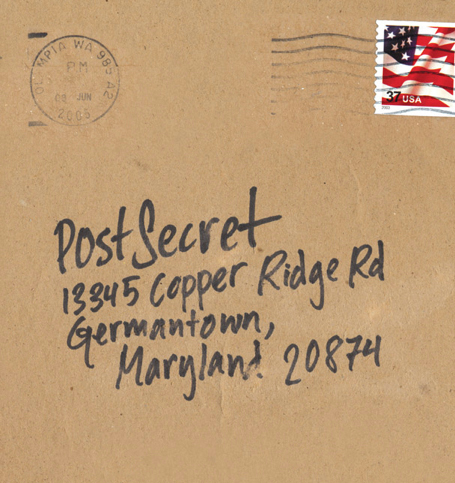 OLYMPIA WA 985
PM
JUN
2005
37 USA
PostSecret
13345 Copper Ridge Rd
Germantown,
Maryland 20874